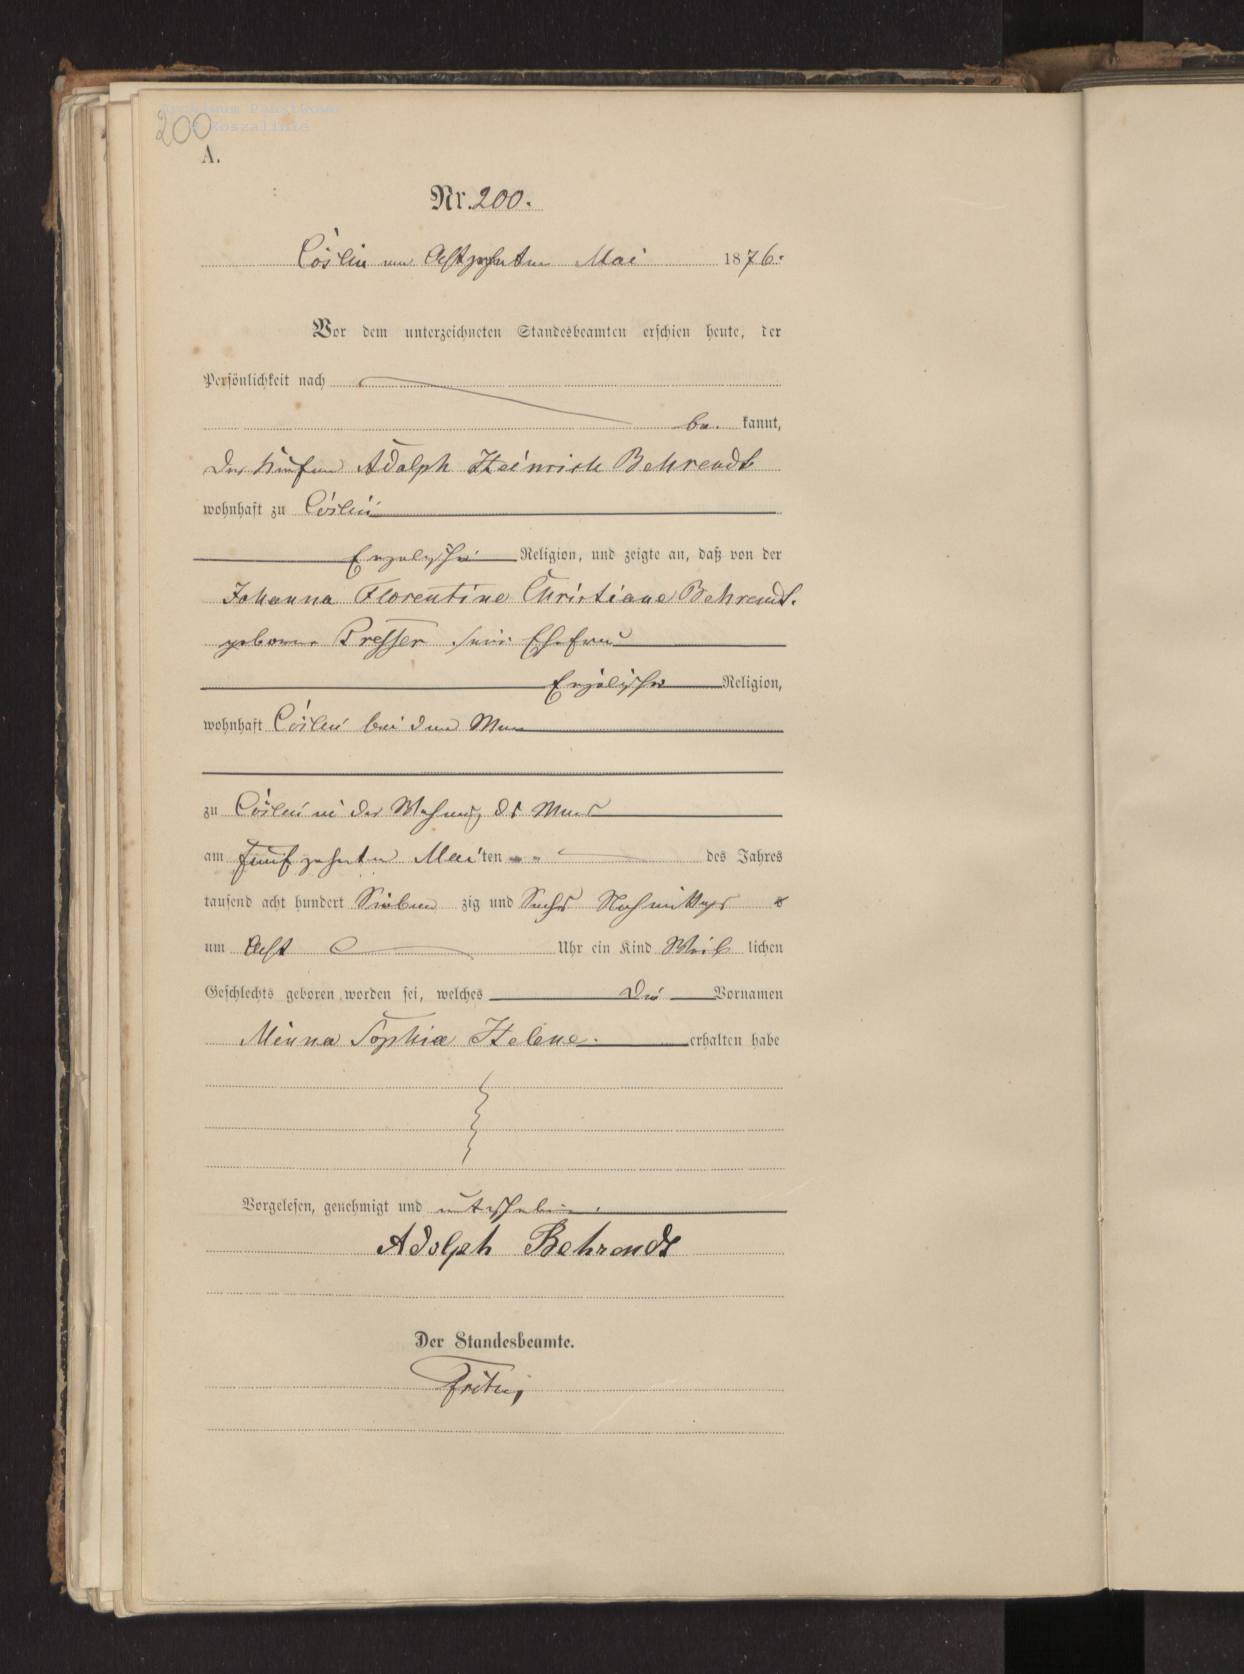 Archiwum Państwowe
w Koszalinie
200
A.
Nr. 200.
Cöslin am Achtzehnten Mai 1876.
Vor dem unterzeichneten Standesbeamten erschien heute, der
Persönlichkeit nach
be kannt,
der Adolph Heinrich Behrendt
wohnhaft zu Cöslin
Evangelischer Religion, und zeigte an, daß von der
Johanna Florentine Christiane Behrendt.
geborene Presser seine Ehefrau
Evangelischer Religion,
wohnhaft Cöslin bei dem Mann
zu Cöslin in der Wohnung des Mannes
am fünfzehnten Mai ten des Jahres
tausend acht hundert Sieben zig und Sechs Nachmittags
um Acht Uhr ein Kind Weib lichen
Geschlechts geboren worden sei, welches die Vornamen
Minna Sophie Helene. erhalten habe
Vorgelesen, genehmigt und unterschrieben.
Adolph Behrendt
Der Standesbeamte.